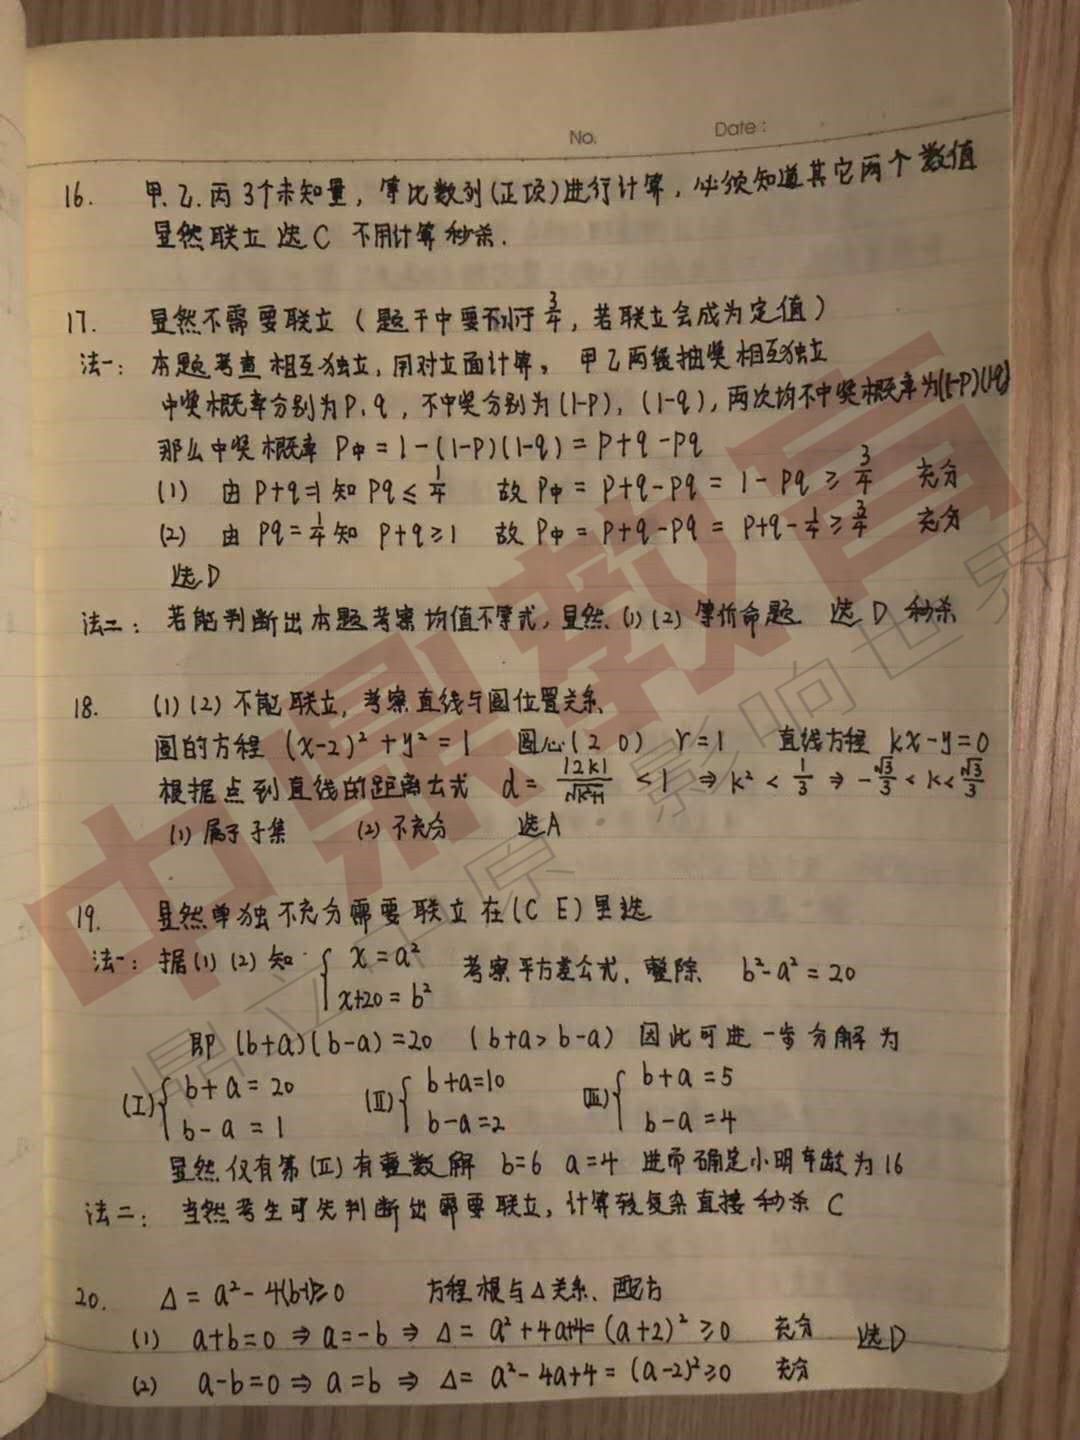 No.
Date:
16. 甲.乙.丙3个未知量，等比数列(正项)进行计算，必须知道其它两个数值
显然联立选C 不用计算秒杀.
17. 显然不需要联立(题干中要不小于3/4，若联立会成为定值)
法一: 本题考查相互独立，用对立面计算。甲乙两袋抽奖相互独立
中奖概率分别为P.q，不中奖分别为(1-P)，(1-q)，两次均不中奖概率为(1-P)(1-q)
那么中奖概率 P中=1-(1-P)(1-q)=P+q-Pq
(1) 由P+q=1知Pq≤1/4 故P中=P+q-Pq=1-Pq≥3/4 充分
(2) 由Pq=1/4知P+q≥1 故P中=P+q-Pq=P+q-1/4≥3/4 充分
选D
法二: 若能判断出本题考察均值不等式，显然(1)(2)等价命题 选D 秒杀
18. (1)(2)不能联立，考察直线与圆位置关系
圆的方程 (x-2)²+y²=1 圆心(2 0) r=1 直线方程 kx-y=0
根据点到直线的距离公式 d=|2k|/√k²+1 <1 ⇒ k²<1/3 ⇒ -√3/3<k<√3/3
(1)属于子集 (2)不充分 选A
19. 显然单独不充分需要联立在(C E)里选
法一: 据(1)(2)知 { x=a² 考察平方差公式、整除 b²-a²=20
x+20=b²
即(b+a)(b-a)=20 (b+a>b-a) 因此可进一步分解为
(I){ b+a=20 (II){ b+a=10 (III){ b+a=5
b-a=1 b-a=2 b-a=4
显然仅有第(II)有整数解 b=6 a=4 进而确定小明年龄为16
法二: 当然考生可先判断出需要联立，计算较复杂直接秒杀 C
20. Δ=a²-4(b-1)≥0 方程根与Δ关系、配方
(1) a+b=0⇒a=-b⇒Δ=a²+4a+4=(a+2)²≥0 充分 选D
(2) a-b=0⇒a=b⇒Δ=a²-4a+4=(a-2)²≥0 充分
中鼎教育
鼎立中原·影响世界